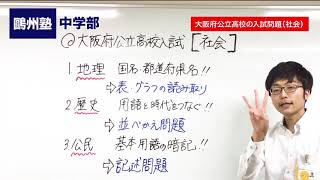 鷗州塾 中学部
大阪府公立高校の入試問題(社会)
◎大阪府公立高校入試 [社会]
1 地理 国名・都道府県名!!
⇨表・グラフの読み取り
2 歴史 用語と時代をつなぐ!!
⇨並べかえ問題
3 公民 基本用語の暗記!!
⇨記述問題